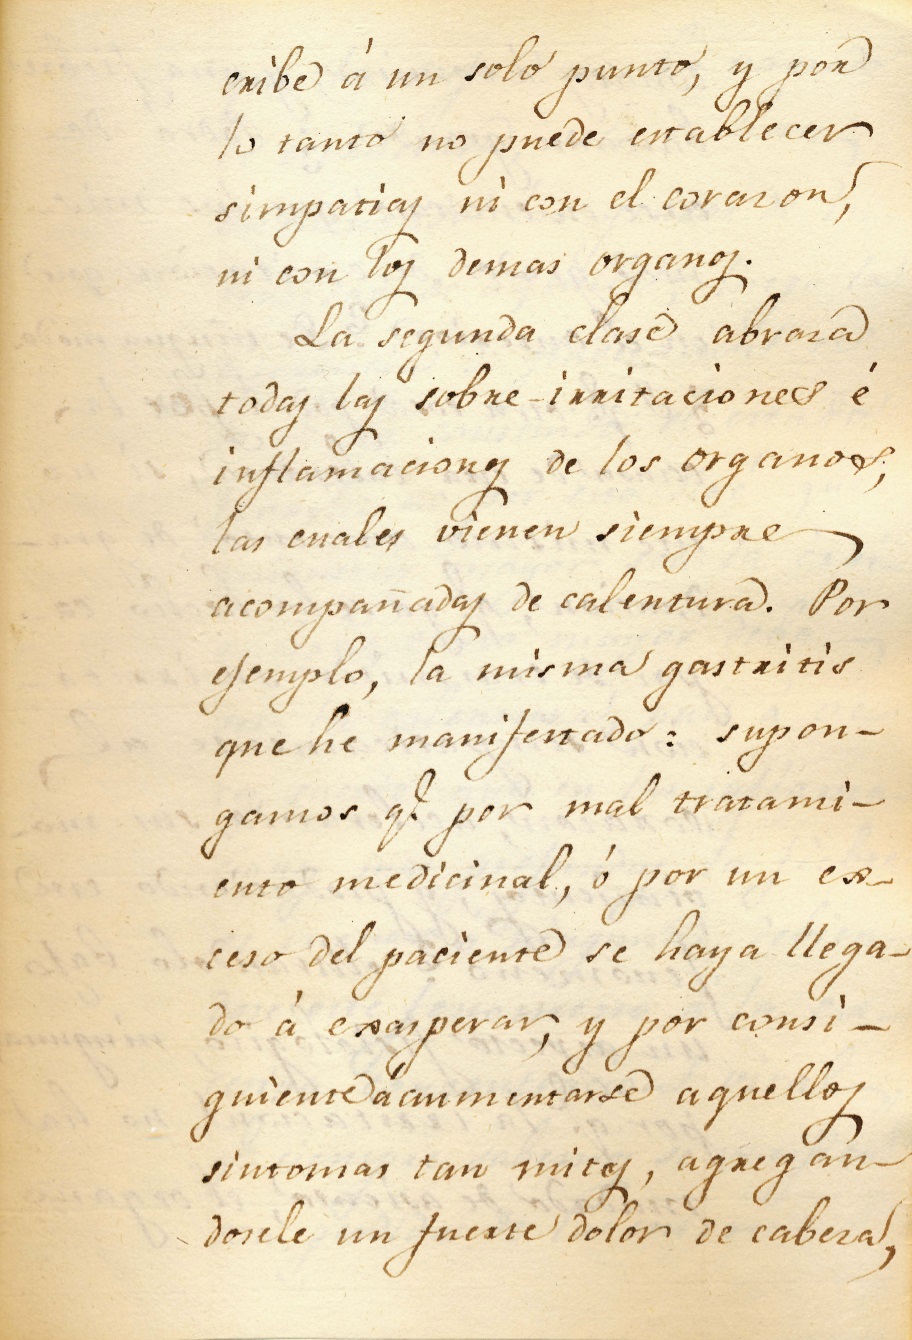 cribe á un solo punto, y por
lo tanto no puede establecer
simpatias ni con el corazon,
ni con los demas organos.
La segunda clase abraza
todas las sobre-irritaciones é
inflamaciones de los organos,
las cuales vienen siempre
acompañadas de calentura. Por
ejemplo, la misma gastritis
que he manifestado: supon-
gamos q.e por mal tratami-
ento medicinal, ó por un ex-
ceso del paciente se haya llega-
do á exasperar, y por consi-
guiente á aumentarse aquellos
sintomas tan mites, agregan-
dosele un fuerte dolor de cabeza,